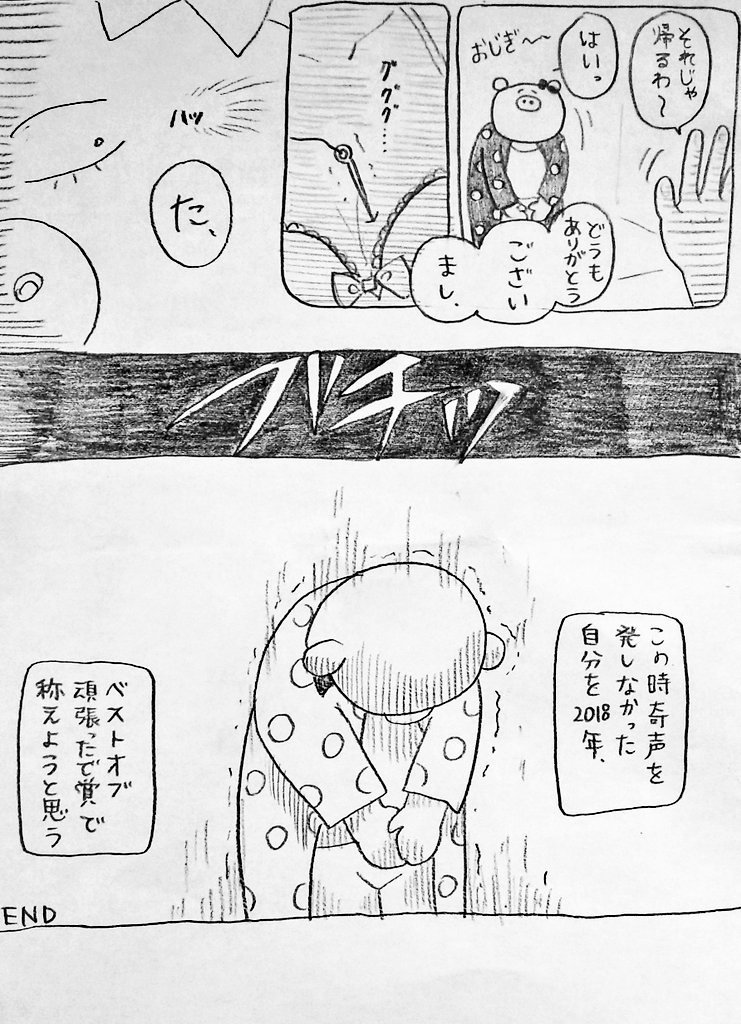 それじゃ
帰るわ〜
はいっ
おじぎ〜〜
どうも
ありがとう
ござい
まし、
グググ…
ハッ
た、
ブチッ
この時奇声を
発しなかった
自分を2018年、
ベストオブ
頑張ったで賞で
称えようと思う
END